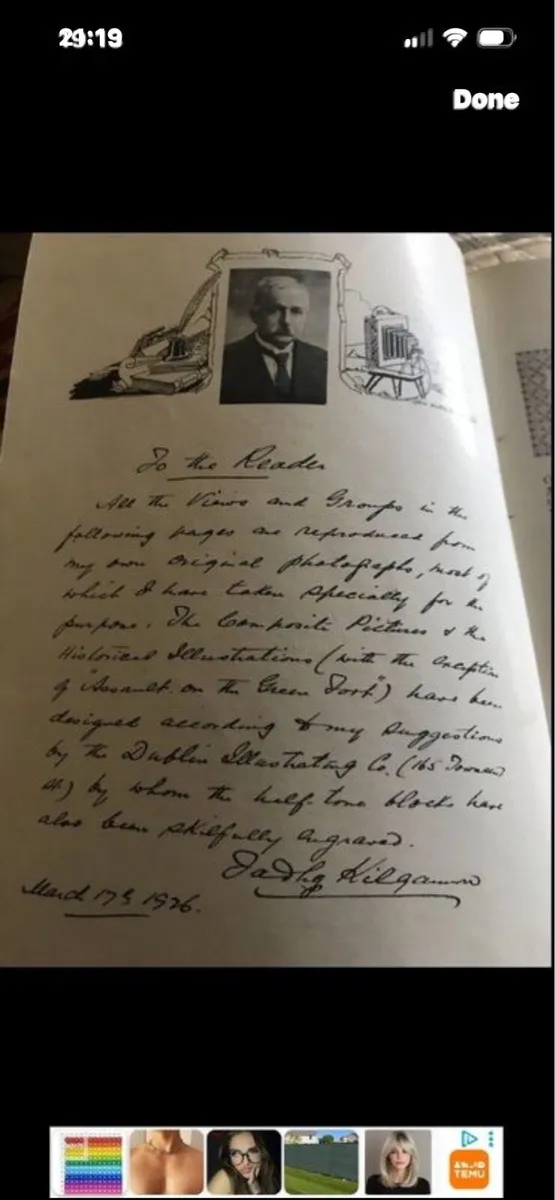 29:19
Done
To the Reader
All the Views and Groups in the
following pages are reproduced from
my own original photographs, most of
which I have taken specially for the
purpose. The Composite Pictures & the
Historical Illustrations (with the exception
of "Assault on the Green Fort") have been
designed according to my suggestions
by the Dublin Illustrating Co. (165 Townsend
St.) by whom the half-tone blocks have
also been skilfully engraved.
Tadhg Kilgannon
March 17th 1926.
TEMU